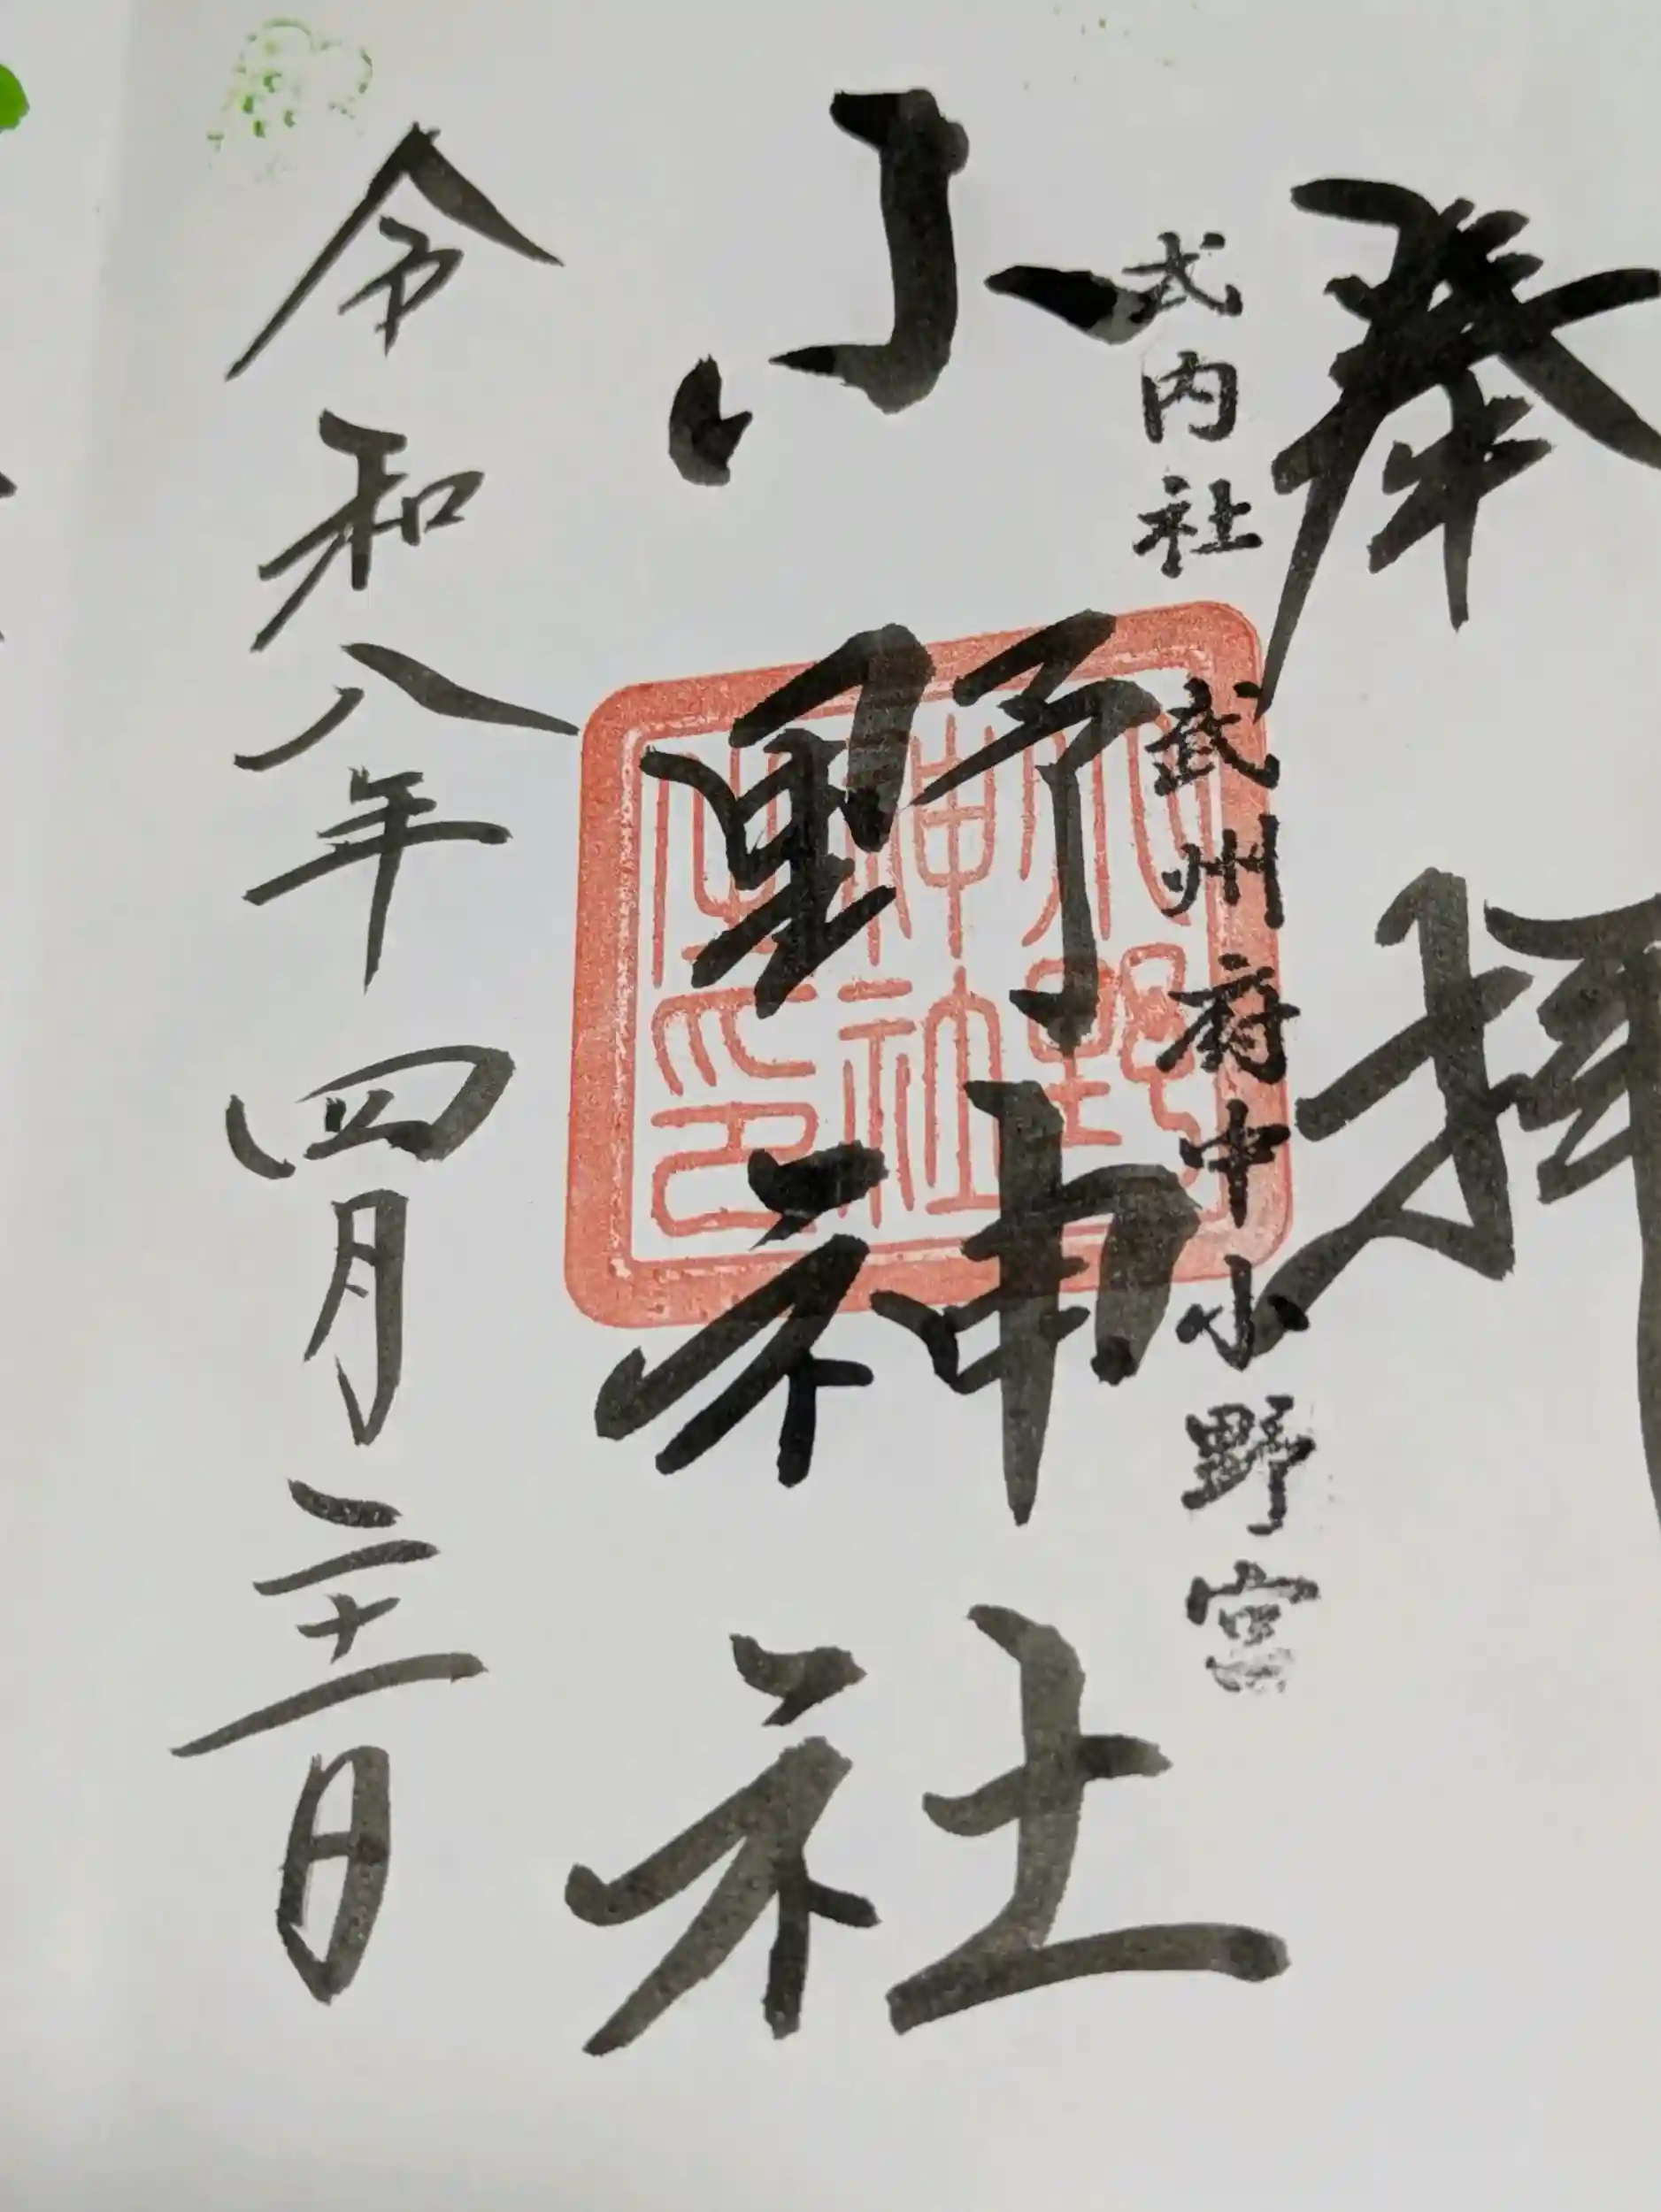 奉拝
式内社 武州府中小野宮
小野神社
小野
神社
之印
令和八年四月二十一日